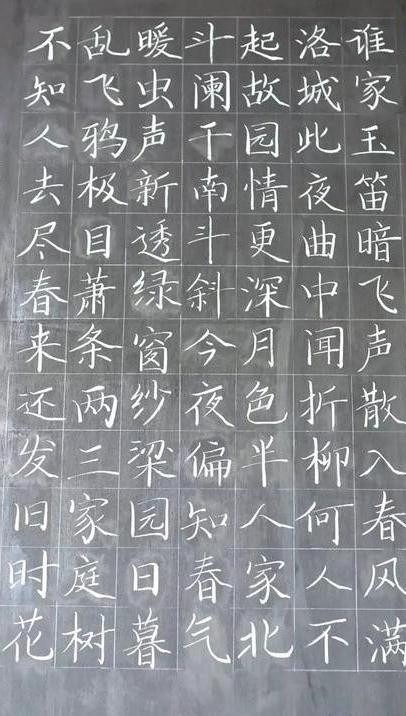 谁家玉笛暗飞声散入春风满
洛城此夜曲中闻折柳何人不
起故园情更深月色半人家北
斗阑干南斗斜今夜偏知春气
暖虫声新透绿窗纱梁园日暮
乱飞鸦极目萧条两三家庭树
不知人去尽春来还发旧时花